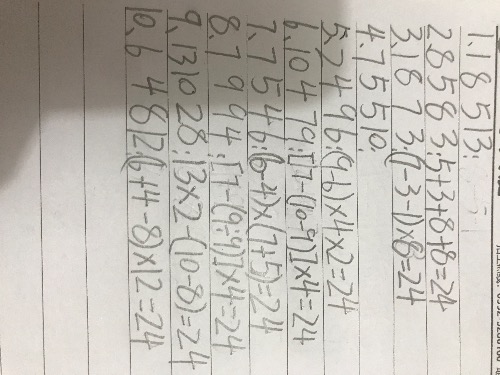 1. 1 8 5 13:
2. 8 5 8 3: 5+3+8+8=24
3. 1 8 7 3: (7-3-1)×8=24
4. 7 5 5 10:
5. 2 4 9 6: (9-6)×4×2=24
6. 10 4 7 9: [7-(10-9)]×4=24
7. 7 5 4 6: (6-4)×(7+5)=24
8. 7 9 9 4: [7-(9÷9)]×4=24
9. 13 10 2 8: 13×2-(10-8)=24
10. 6 4 8 12: (6+4-8)×12=24